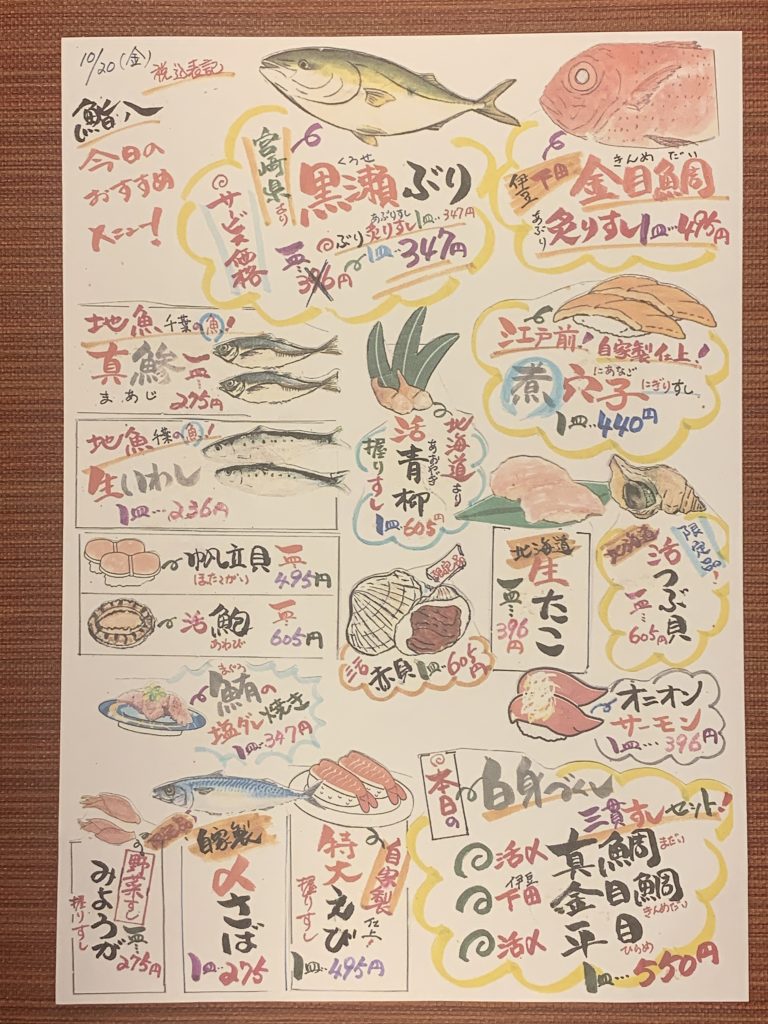 10/20(金)
税込表記
鮨八
今日の
おすすめ
メニュー!
宮崎県より
くろせ
黒瀬ぶり
サービス価格
あぶりすし
ぶり炙りすし1皿…347円
一皿…396円
1皿…347円
伊豆下田
きんめだい
金目鯛
あぶり
炙りすし1皿…495円
地魚千葉の魚!
真鯵
まあじ
一皿…275円
地魚千葉の魚!
生いわし
1皿…236円
北海道より
活青柳
あおやぎ
握りすし
1皿…605円
江戸前!自家製仕上!
にあなご
煮穴子にぎりすし
1皿…440円
帆立貝
ほたてがい
一皿…495円
活鮑
あわび
一皿…605円
限定品
活赤貝1皿…605円
北海道
生たこ
一皿…396円
限定品!
北海道
活つぶ貝
一皿…605円
まぐろ
鮪の
塩ダレ焼き
1皿…347円
オニオン
サーモン
1皿…396円
野菜すし
みょうが
握りすし
一皿…275円
自家製
〆さば
1皿…275
自家製仕上!
特大えび
握りすし
1皿…495円
本日の
白身づくし
三貫すしセット!
活〆真鯛
まだい
伊豆
下田金目鯛
きんめだい
活〆平目
ひらめ
1皿…550円